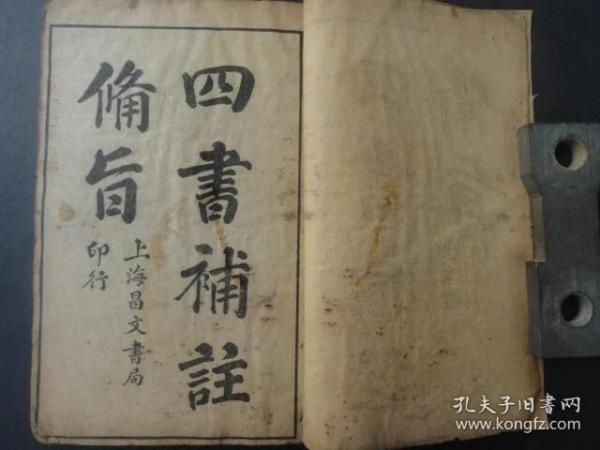 四書補註
備旨
上海昌文書局
印行
孔夫子旧书网
www.kongfz.com